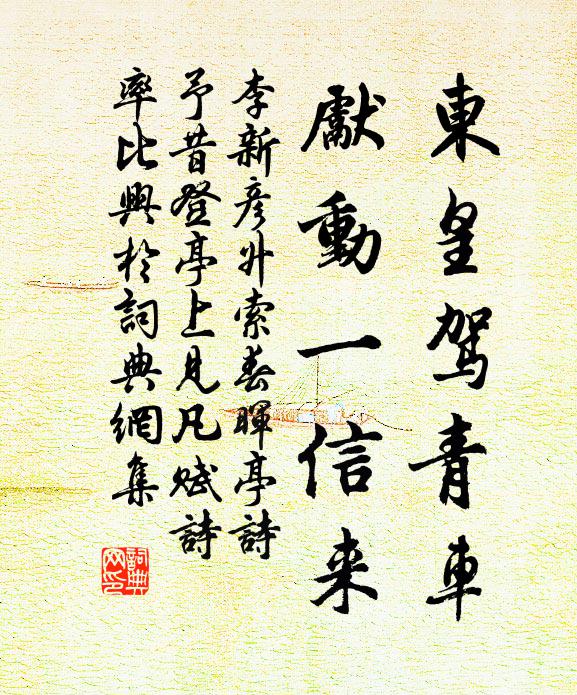 東皇駕青車
獻動一信来
李新彦升索春暉亭詩
予昔登亭上見凡賦詩
率比興於詞典網集
詞典网印